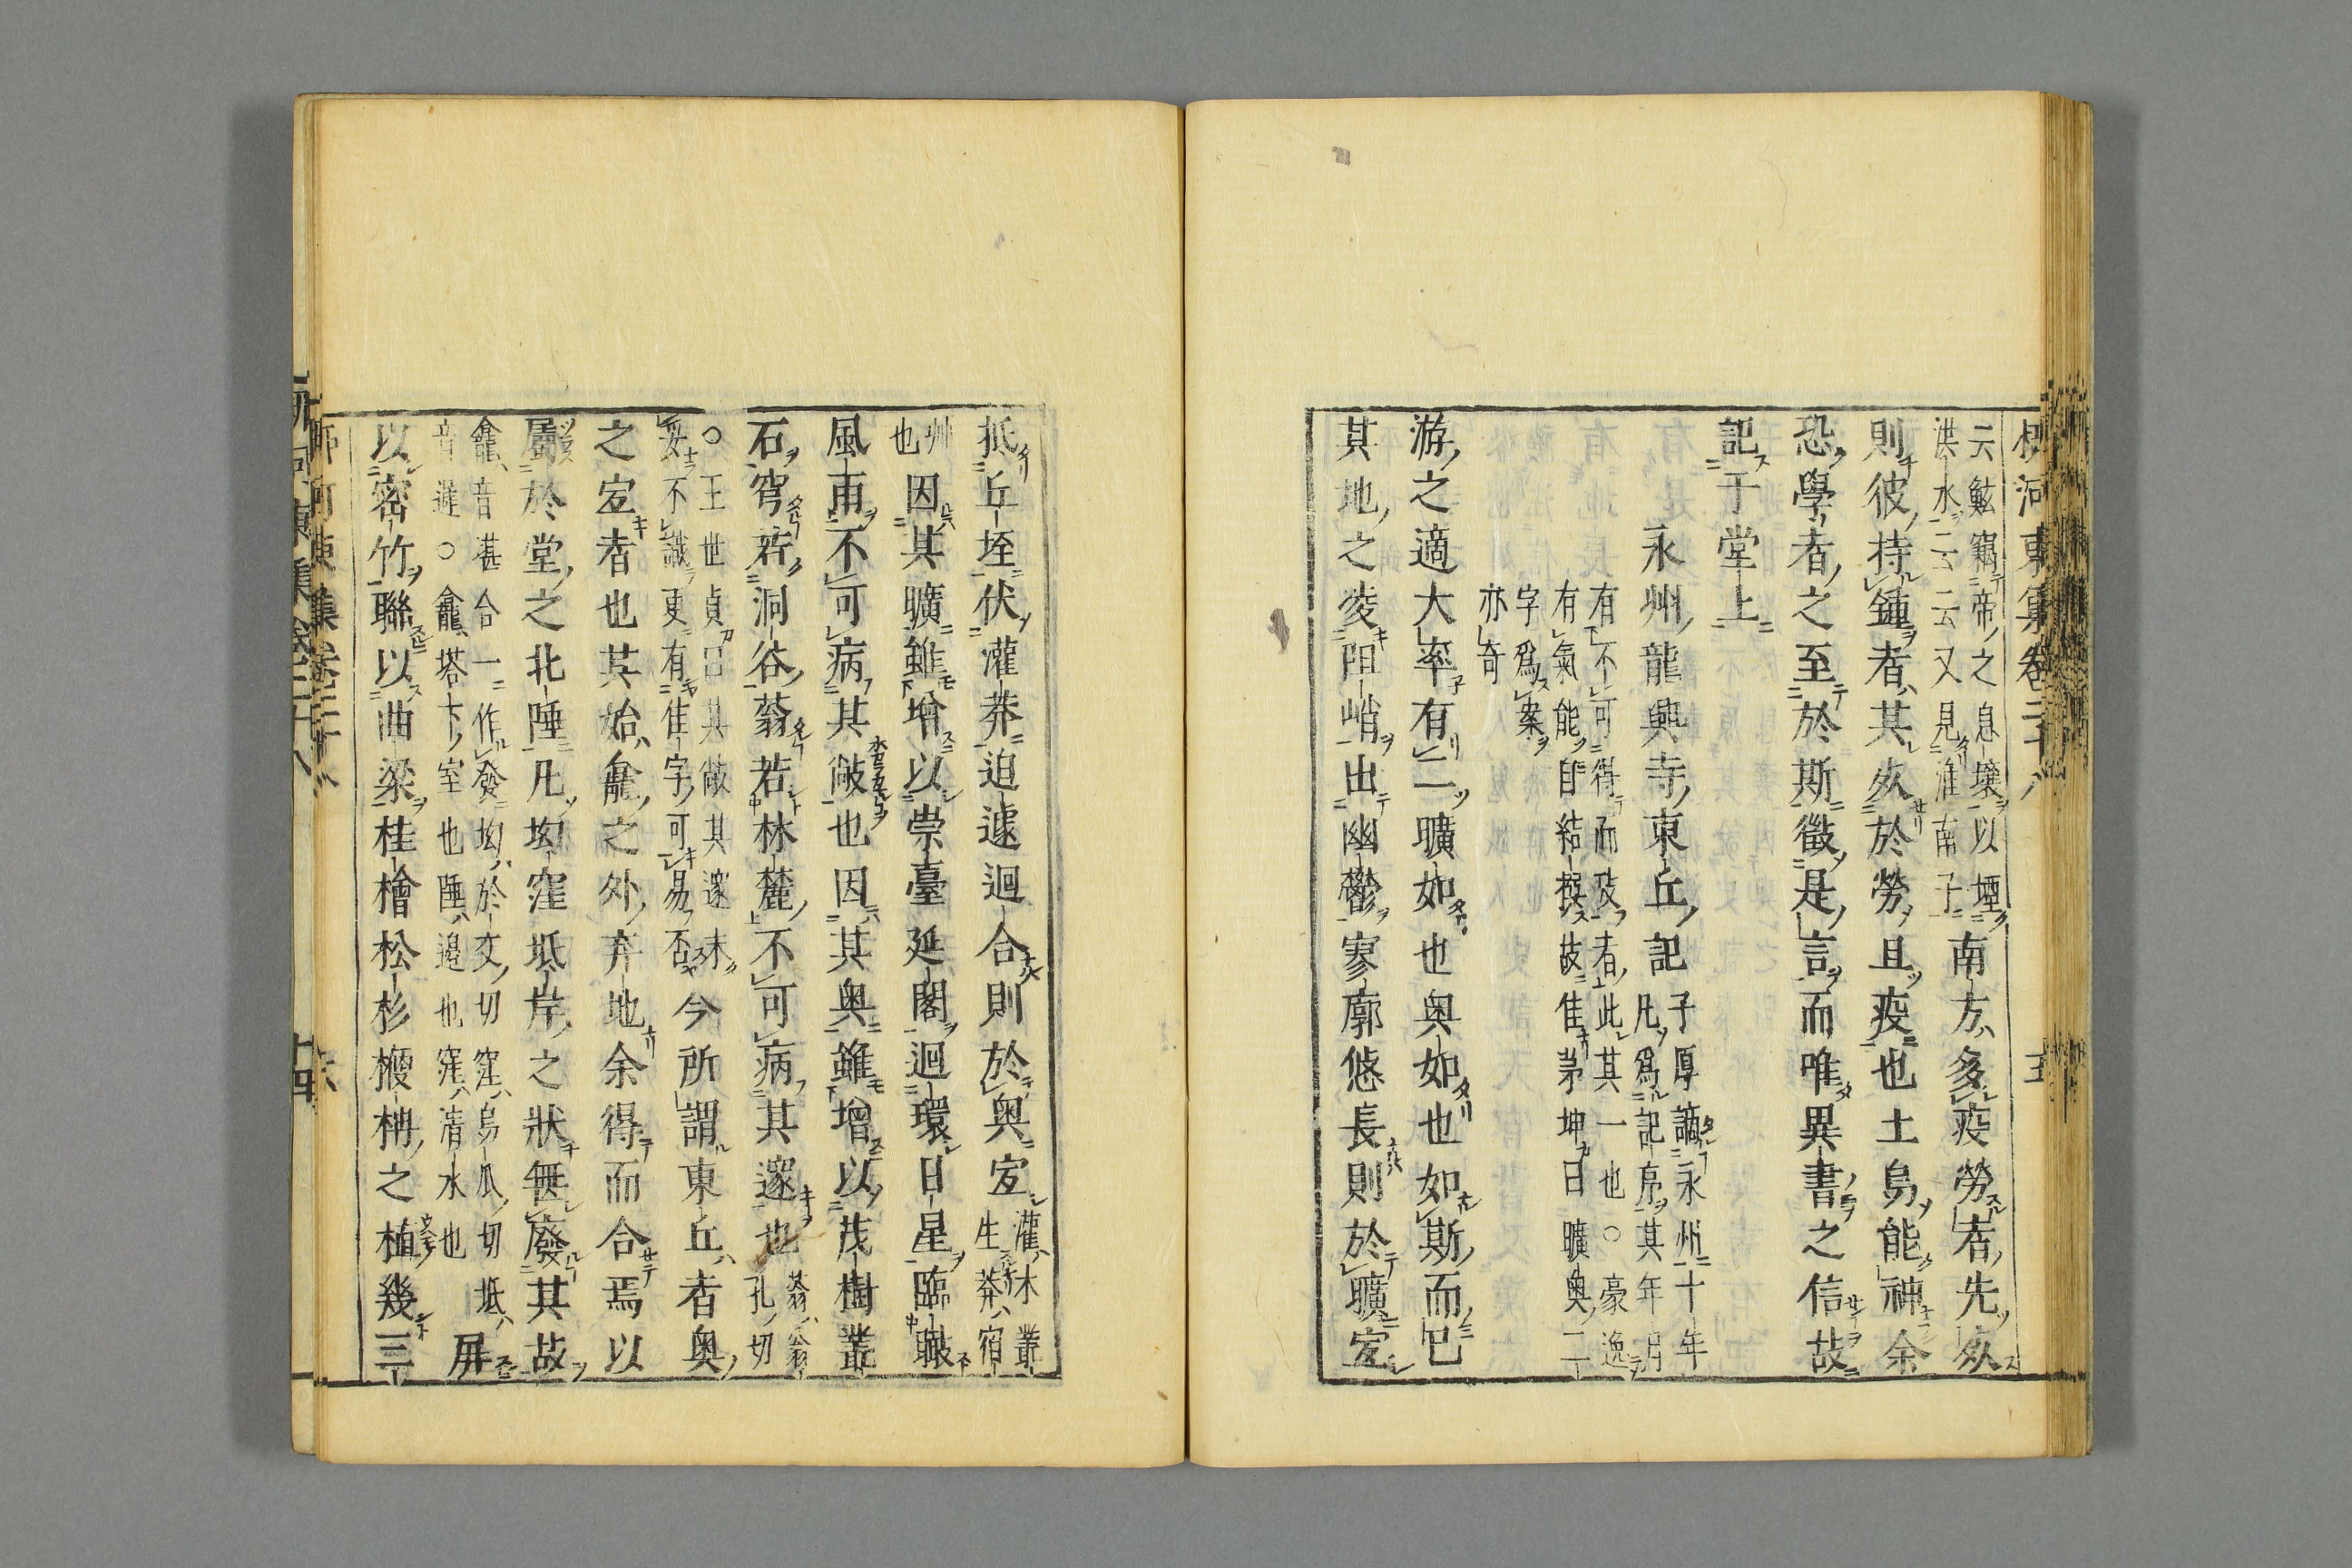 柳河東集卷二十八
五
云鮌竊帝之息壤以堙
洪水云云又見淮南子
南方多疫勞者先死
則彼持鍤者其死於勞且疫也土烏能神余
恐學者之至於斯徵是言而唯異書之信故
記于堂上
永州龍興寺東丘記
子厚謫永州十年
凡爲記序其年月
有不可得而攷者此其一也○豪逸
有氣能自結撰故佳茅坤曰曠奥二
字爲案
亦奇
游之適大率有二曠如也奥如也如斯而已
其地之凌阻峭出幽鬱寥廓悠長則於曠宜
抵丘垤伏灌莽迫遽迴合則於奥宜
灌木叢
生莽宿
艸
也
因其曠雖增以崇臺延閣迴環日星臨瞰
風雨不可病其敞也因其奥雖增以茂樹叢
石穹若洞谷蓊若林麓不可病其邃也
蓊翁
孔切
○王世貞曰其敞其邃未
妥不識更有佳字可易否
今所謂東丘者奥
之宜者也其始龕之外弃地余得而合焉以
屬於堂之北陲凡坳窪坻岸之狀無廢其故
龕音堪合一作發坳於交切窪烏瓜切坻
音遲○龕塔下室也陲邉也窪清水也
屏
以密竹聯以曲梁桂檜松杉楩柟之植幾三
柳河東集卷二十八
六